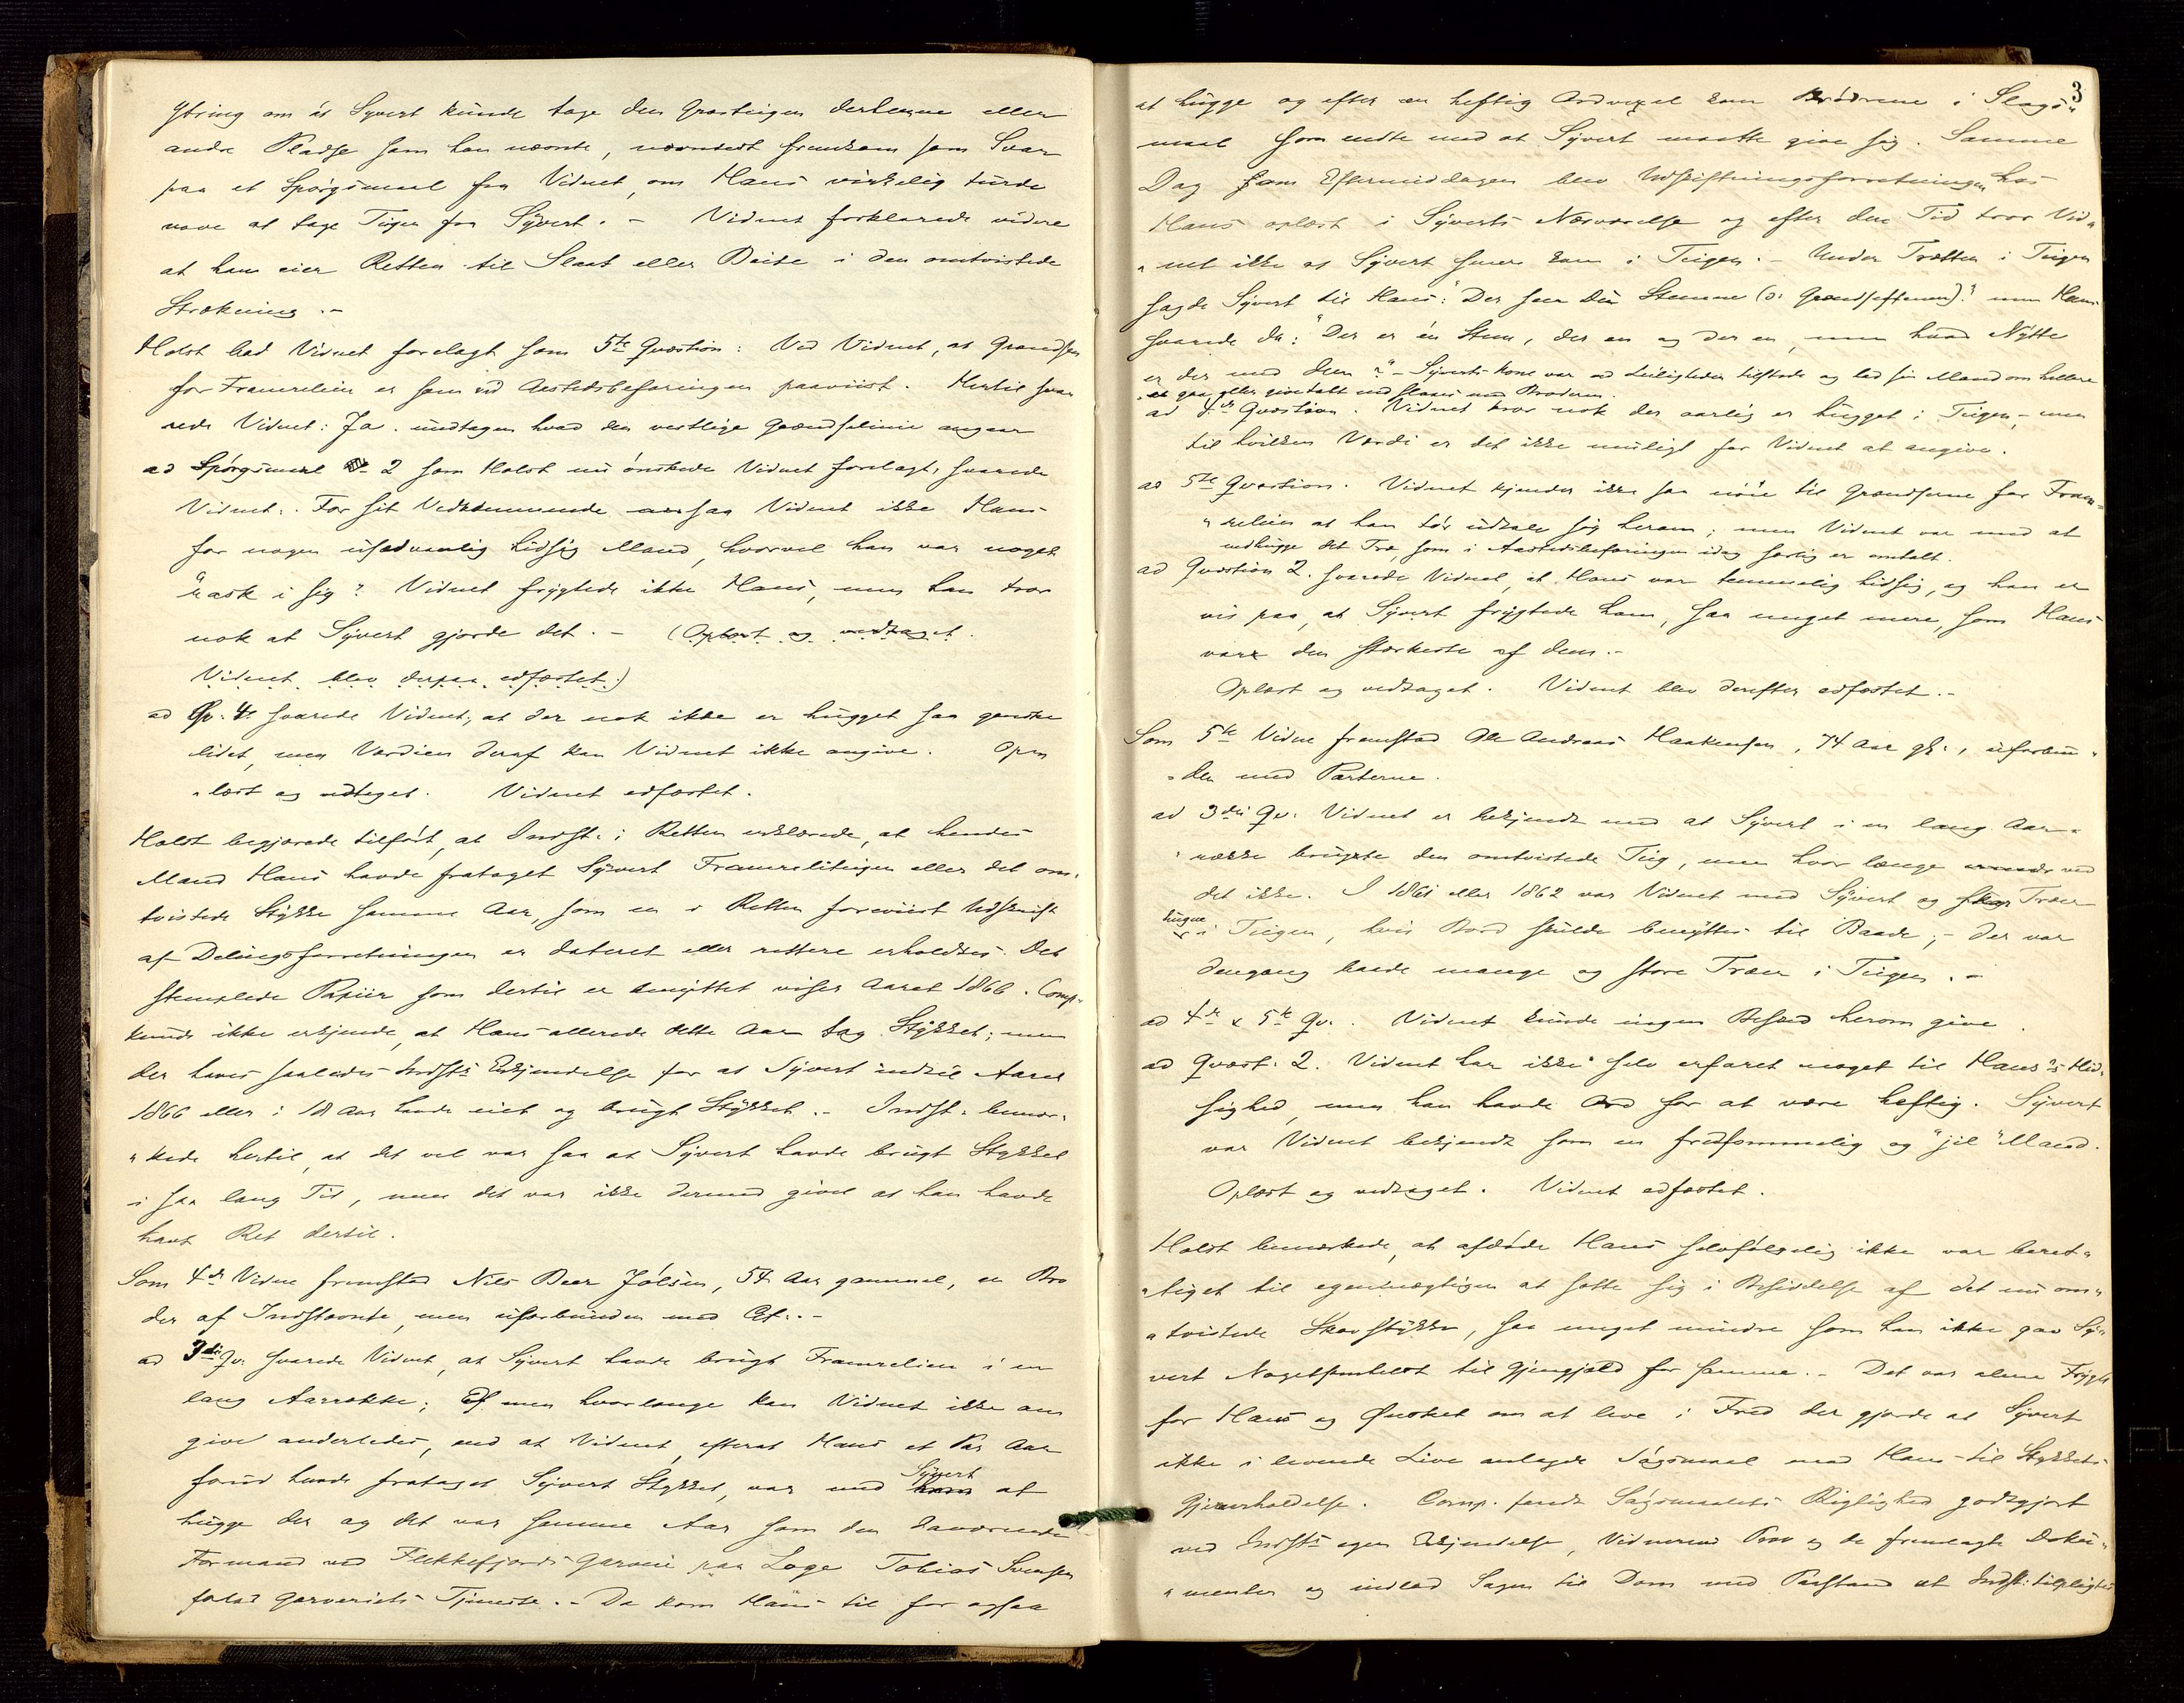 Ytring om at Syvert kunde tage den Græsteigen derhenne eller
andre Pladse som han nævnte, nærmest fremkom som Svar
paa et Spørgsmaal fra Vidnet, om Hans virkelig turde
vove at tage Teigen fra Syvert. - Vidnet forklarede videre
at han eier Retten til Slaat eller Beite i den omtvistede
Strækning. -
Holst bad Vidnet forelagt som 5te Qvæstion: Ved Vidnet, at Grændsen
for Framrelien er som ved Aastedsbefaringen paaviist. Hertil sva
rede Vidnet: Ja. undtagen hvad den vestlige Grændselinie angaar
ad Spørgsmaal 2 som Holst nu ønskede Vidnet forelagt, svarede
Vidnet: For sit Vedkommende ansaa Vidnet ikke Hans
for nogen usædvanlig hidsig Mand, hvorvel han var noget
"rask i sig". Vidnet frygtede ikke Hans, men han tror
nok at Syvert gjorde det. - (Oplæst og vedtaget.
Vidnet blev derpaa edfæstet.)
ad Qv. 4. svarede Vidnet, at der nok ikke er hugget saa ganske
lidet, men Værdien deraf kan Vidnet ikke angive. Op
"læst og vedtaget. Vidnet edfæstet.
Holst begjærede tilført, at Indst. i Retten erklærede, at hendes
Mand Hans havde frataget Syvert Framreliteigen eller det om-
tvistede Stykke samme Aar, som en i Retten foreviist Udskrift
af Delingsforretningen er dateret eller rettere erholdtes. Det
stemplede Papiir som dertil er benyttet viser Aaret 1866. Comp.
kunde ikke erkjende, at Hans allerede dette Aar tog Stykket; men
der haves saaledes Indsts Erkjendelse for at Syvert indtil Aaret
1866 eller i 18 Aar havde eiet og brugt Stykket. - Indst. bemær-
"kede hertil, at det vel var saa at Syvert havde brugt Stykket
i saa lang Tid, men det var ikke dermed givet at han havde
havt Ret dertil.
Som 4de Vidne fremstod Nils Beer Jølsen, 54 Aar gammel, en Bro
der af Indstævnte, men uforbunden med Cit. -
ad 3die Qv. svarede Vidnet, at Syvert havde brugt Framrelien i en
lang Aarrække; men hvorlænge kan Vidnet ikke an
give anderledes, end at Vidnet, efterat Hans et Par Aar
forud havde frataget Syvert Stykket, var med Syvert at
hugge der og det var samme Aar som den daværende
Formand ved Flekkefjords Garveri paa Loge Tobias Svensen
forlod Garveriets Tjeneste. - Da kom Hans til for ogsaa
3
at hugge og efter en heftig Ordvexel kom Brødrene i Slags"
maal som endte med at Syvert maatte give sig. Samme
Dag om Eftermiddagen blev Udskiftningsforretningen hos
Hans oplæst i Syverts Nærværelse og efter den Tid tror Vid"
"net ikke at Syvert senere kom i Teigen. - Under Trætten i Teigen
sagde Syvert til Hans: "Der ser Du Stemne (ɔ: Grændsestemne)." men Hans
svarede da: "Der er én Stem, der en og der en, men hvad Nytte
er der med dem?" - Syverts Kone var ved Leiligheden tilstede og bad sin Mand om hellere
at gaa eller give talt end slaaes med Broderen.
ad 4de Qvæstion. Vidnet tror nok der aarlig er hugget i Teigen, men
til hvilken Værdi er det ikke muligt for Vidnet at angive.
ad 5te Qvæstion. Vidnet kjender ikke saa nøie til Grændserne for Fram-
"relien at han tør udtale sig herom; men Vidnet var med at
nedhugge det Træ, som i Aastedsbefaringen idag særlig er omtalt.
ad Qvæstion 2. svarede Vidnet, at Hans var temmelig hidsig, og han er
vis paa, at Syvert frygtede ham, saa meget mere, som Hans
var den stærkeste af dem. -
Oplæst og vedtaget. Vidnet blev derefter edfæstet. -
Som 5te Vidne fremstod Ole Andreas Haakensen, 74 Aar gl., uforbun"
"den med Parterne.
ad 3die Qv. Vidnet er bekjendt med at Syvert i en lang Aar-
"række brugte den omtvistede Teig, men hvor længe ved
det ikke. I 1861 eller 1862 var Vidnet med Syvert og skar Træer
hugne
i Teigen, hvis Bord skulde benyttes til Baade; - der var
dengang baade mange og store Træer i Teigen. -
ad 4de & 5te Qv. Vidnet kunde ingen Besked herom give.
ad Qvæst. 2. Vidnet har ikke selv erfaret noget til Hans's Hid-
sighed, men han havde Ord for at være heftig. Syvert
var Vidnet bekjendt som en fredsommelig og "jil" Mand.
Oplæst og vedtaget. Vidnet edfæstet.
Holst bemærkede, at afdøde Hans selvfølgelig ikke var beret"
"tiget til egenmægtigen at sætte sig i Besiddelse af det nu om"
"tvistede Skovstykke, saa meget mindre som han ikke gav Sy-
vert Nogetsomhelst til Gjengjæld for samme. - Det var alene Frygt
for Hans og Ønsket om at leve i Fred der gjorde at Syvert
ikke i levende Live anlagde Søgsmaal mod Hans til Stykkets
Gjenerholdelse. Comp. fandt Søgsmaalets Rigtighed godtgjort
ved Indsts egen Erkjendelse, Vidnernes Prov og de fremlagte Doku"
"menter og indlod Sagen til Dom med Paastand at Indst. tilpligtes